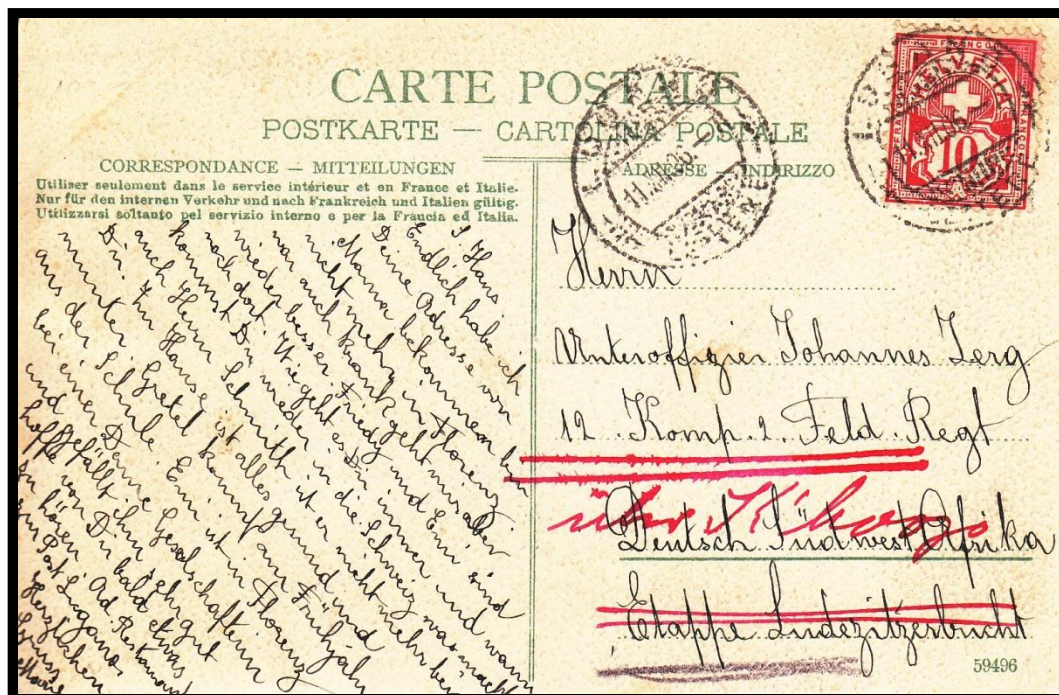 CARTE POSTALE
POSTKARTE — CARTOLINA POSTALE
CORRESPONDANCE — MITTEILUNGEN
Utiliser seulement dans le service intérieur et en France et Italie.
Nur für den internen Verkehr und nach Frankreich und Italien gültig.
Utilizzarsi soltanto pel servizio interno e per la Francia ed Italia.
ADRESSE — INDIRIZZO
FRANCO
HELVETIA
10
L. Hans
Endlich habe ich
Deine Adresse von
Mama bekommen bin
nicht mehr in Florenz
war auch krank geht mir aber
wieder besser Friedy und Emi sind
noch dort. Wie geht es Dir immer und wann
kommst Du wieder in die Schweiz was macht
auch Herrn Schmith ist er nicht mehr bei
Dir. Zu Hause ist alles gesund und
munter Gretel kommt am Frühjahr
aus der Schule. Emi ist in Florenz
bei einer Dame Gesellschafterin
und gefällt ihm sehr gut
hoffe von Dir bald etwas
zu hören. Ad. Restaurant
zum Post Lugano.
Herzlichen
Gruss
Marie
Herrn
Unteroffizier Johannes Zerg
12. Komp. 2. Feld. Regt
über
Deutsch Südwest Afrika
Etappe Luderitzerbucht
59496